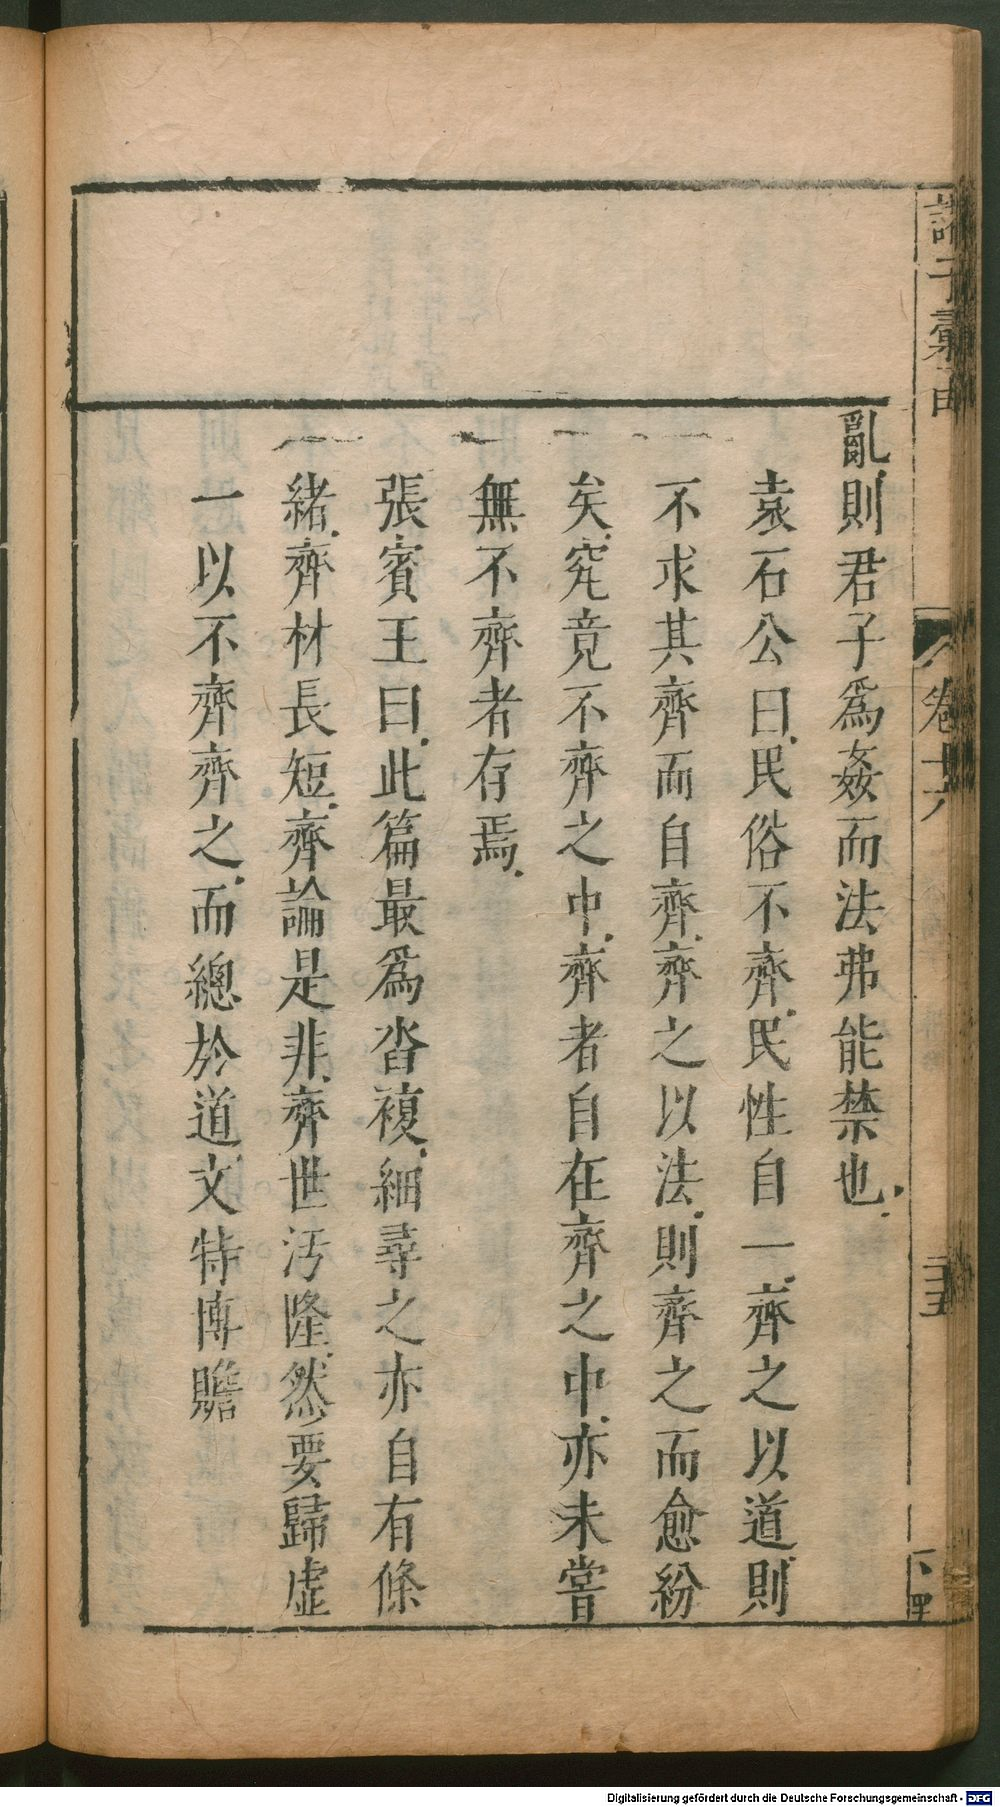 亂則君子爲姦而法弗能禁也
袁石公曰民俗不齊民性自一齊之以道則
不求其齊而自齊齊之以法則齊之而愈紛
矣究竟不齊之中齊者自在齊之中亦未嘗
無不齊者存焉
張賓王曰此篇最爲沓複細尋之亦自有條
緒齊材長短齊論是非齊世汚隆然要歸虛
一以不齊齊之而總於道文特博贍
卷十六
Digitalisierung gefördert durch die Deutsche Forschungsgemeinschaft - DFG